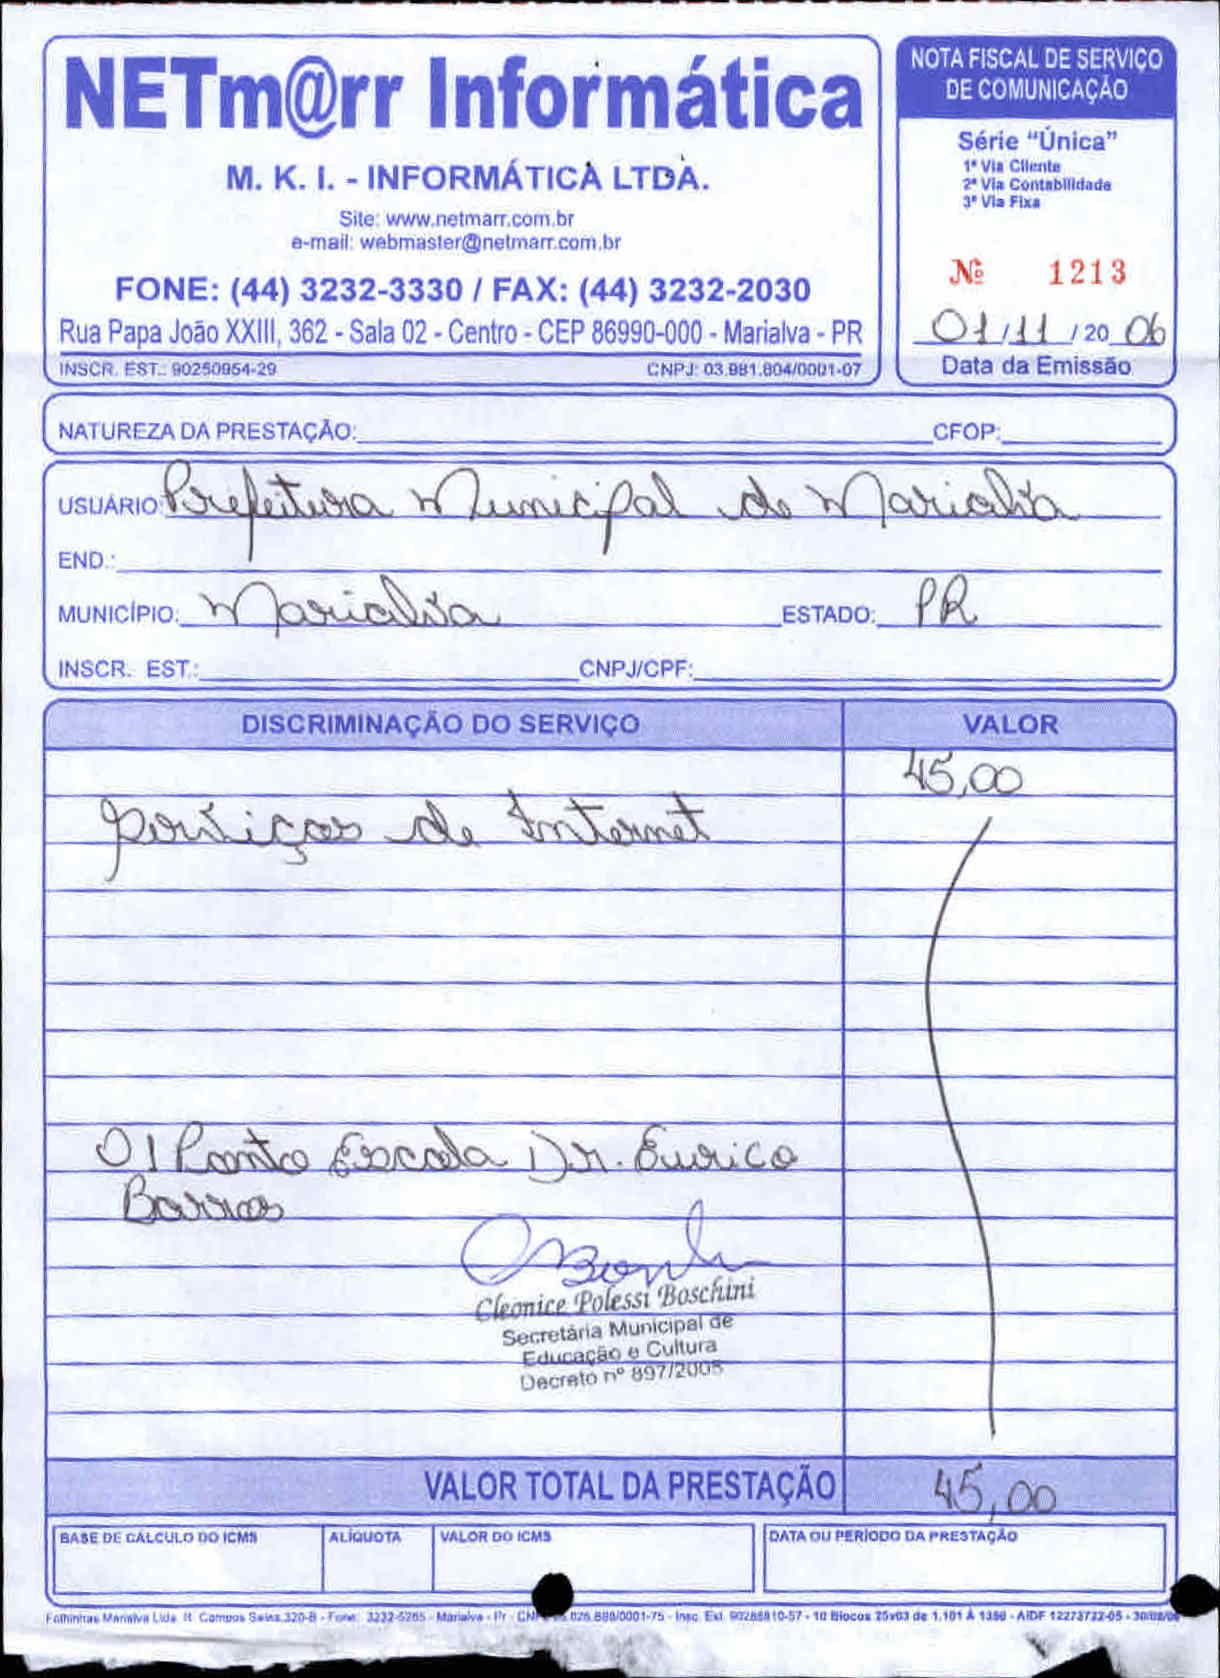 NETm@rr Informática
M. K. I. - INFORMÁTICA LTDA.
Site: www.netmarr.com.br
e-mail: webmaster@netmarr.com.br
FONE: (44) 3232-3330 / FAX: (44) 3232-2030
Rua Papa João XXIII, 362 - Sala 02 - Centro - CEP 86990-000 - Marialva - PR
INSCR. EST.: 90250954-29 CNPJ: 03.981.804/0001-07
NOTA FISCAL DE SERVIÇO
DE COMUNICAÇÃO
Série "Única"
1ª Via Cliente
2ª Via Contabilidade
3ª Via Fixa
Nº 1213
01/11/2006
Data da Emissão
NATUREZA DA PRESTAÇÃO: CFOP:
USUÁRIO: Prefeitura Municipal de Marialva
END.:
MUNICÍPIO: Marialva ESTADO: PR
INSCR. EST.: CNPJ/CPF:
DISCRIMINAÇÃO DO SERVIÇO VALOR
45,00
Serviços de Internet
01 Ponto Escola Dr. Eurico
Barros
Cleonice Polessi Boschini
Secretária Municipal de
Educação e Cultura
Decreto nº 897/2005
VALOR TOTAL DA PRESTAÇÃO 45,00
BASE DE CÁLCULO DO ICMS ALÍQUOTA VALOR DO ICMS DATA OU PERÍODO DA PRESTAÇÃO
Folhinhas Marialva Ltda. R. Campos Sales, 320-B - Fone: 3232-5265 - Marialva - Pr - 10 Blocos 25x03 de 1.101 À 1350 - AIDF 12273722-05